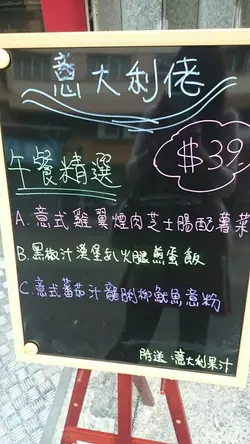 意大利佬
午餐精選
$39
A. 意式雞翼煙肉芝士腸配薯菜
B. 黑椒汁漢堡扒火腿煎蛋飯
C. 意式蕃茄汁龍脷柳魷魚意粉
附送:意大利果汁